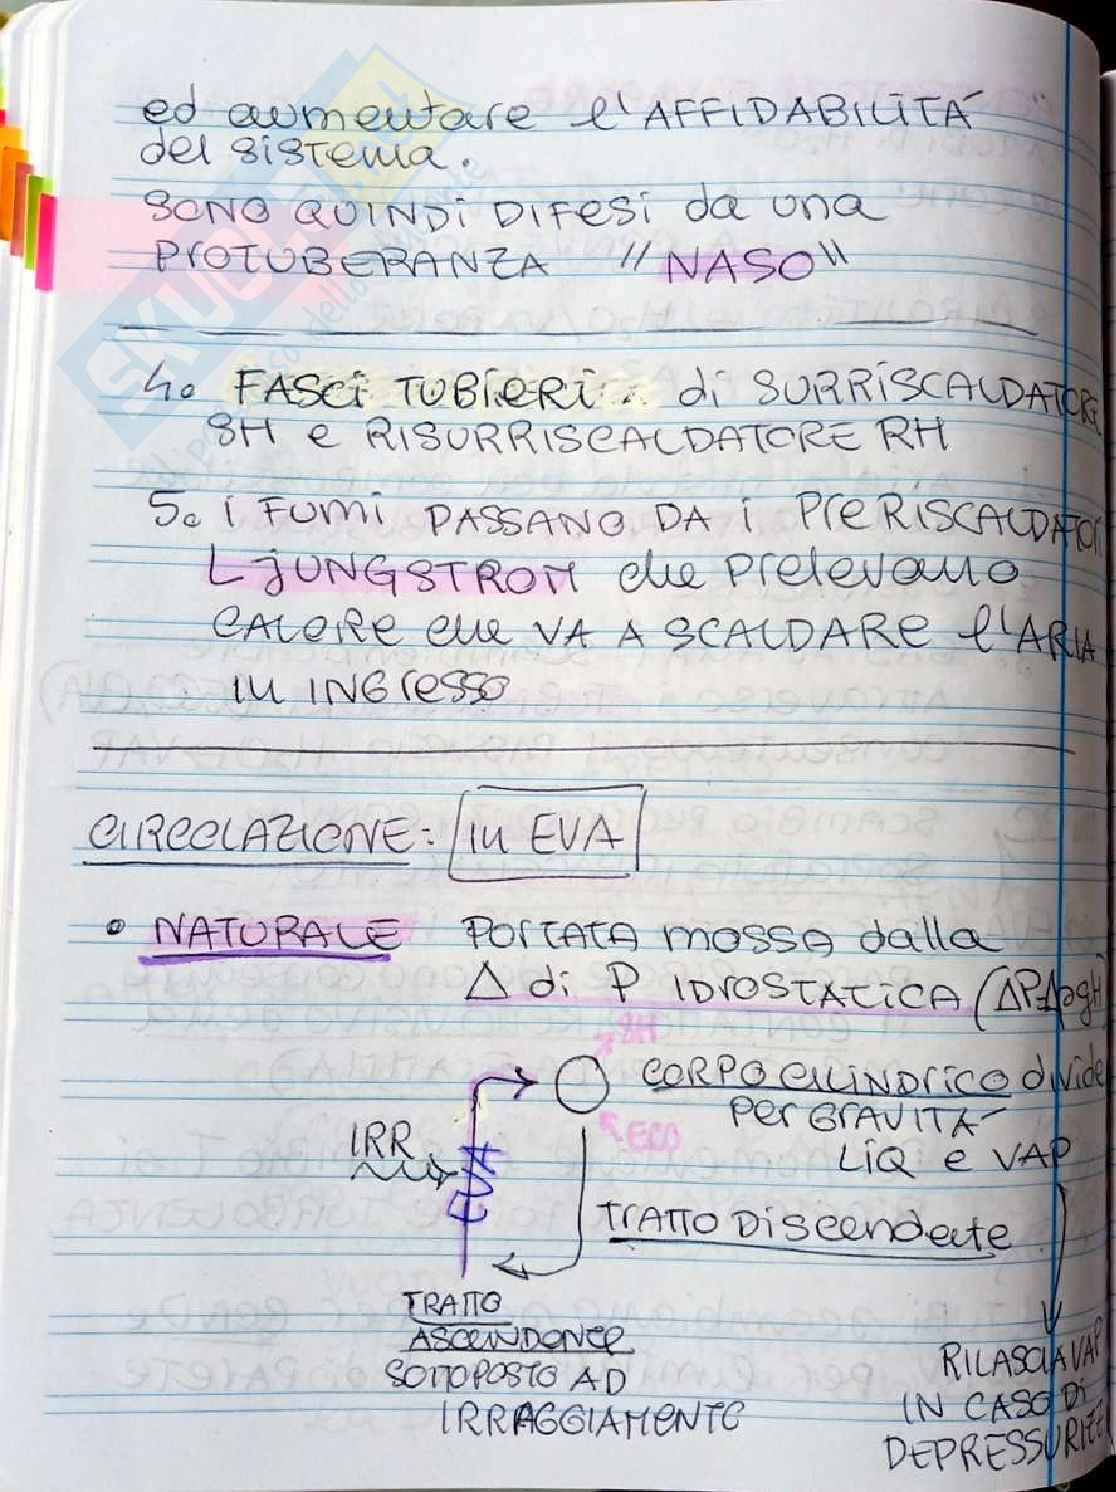 ed aumentare l'AFFIDABILITÀ
del sistema.
SONO QUINDI DIFESI da una
PROTUBERANZA "NASO"
4. FASCI TUBIERI di SURRISCALDATORE
SH e RISURRISCALDATORE RH
5. i FUMI PASSANO DA i PRERISCALDATORI
LJUNGSTROM che prelevano
CALORE che VA A SCALDARE l'ARIA
in INGRESSO
CIRCOLAZIONE: in EVA
• NATURALE PORTATA mossa dalla
Δ di P IDROSTATICA (ΔPΔρgH
SH
CORPO CILINDRICO divide
per GRAVITÀ
ECO
IRR
LIQ e VAP
EVA
TRATTO DISCENDENTE
TRATTO
ASCENDENTE
SOTTOPOSTO AD
IRRAGGIAMENTO
RILASCIA VAP
IN CASO DI
DEPRESSURIZZ
SKUOLA